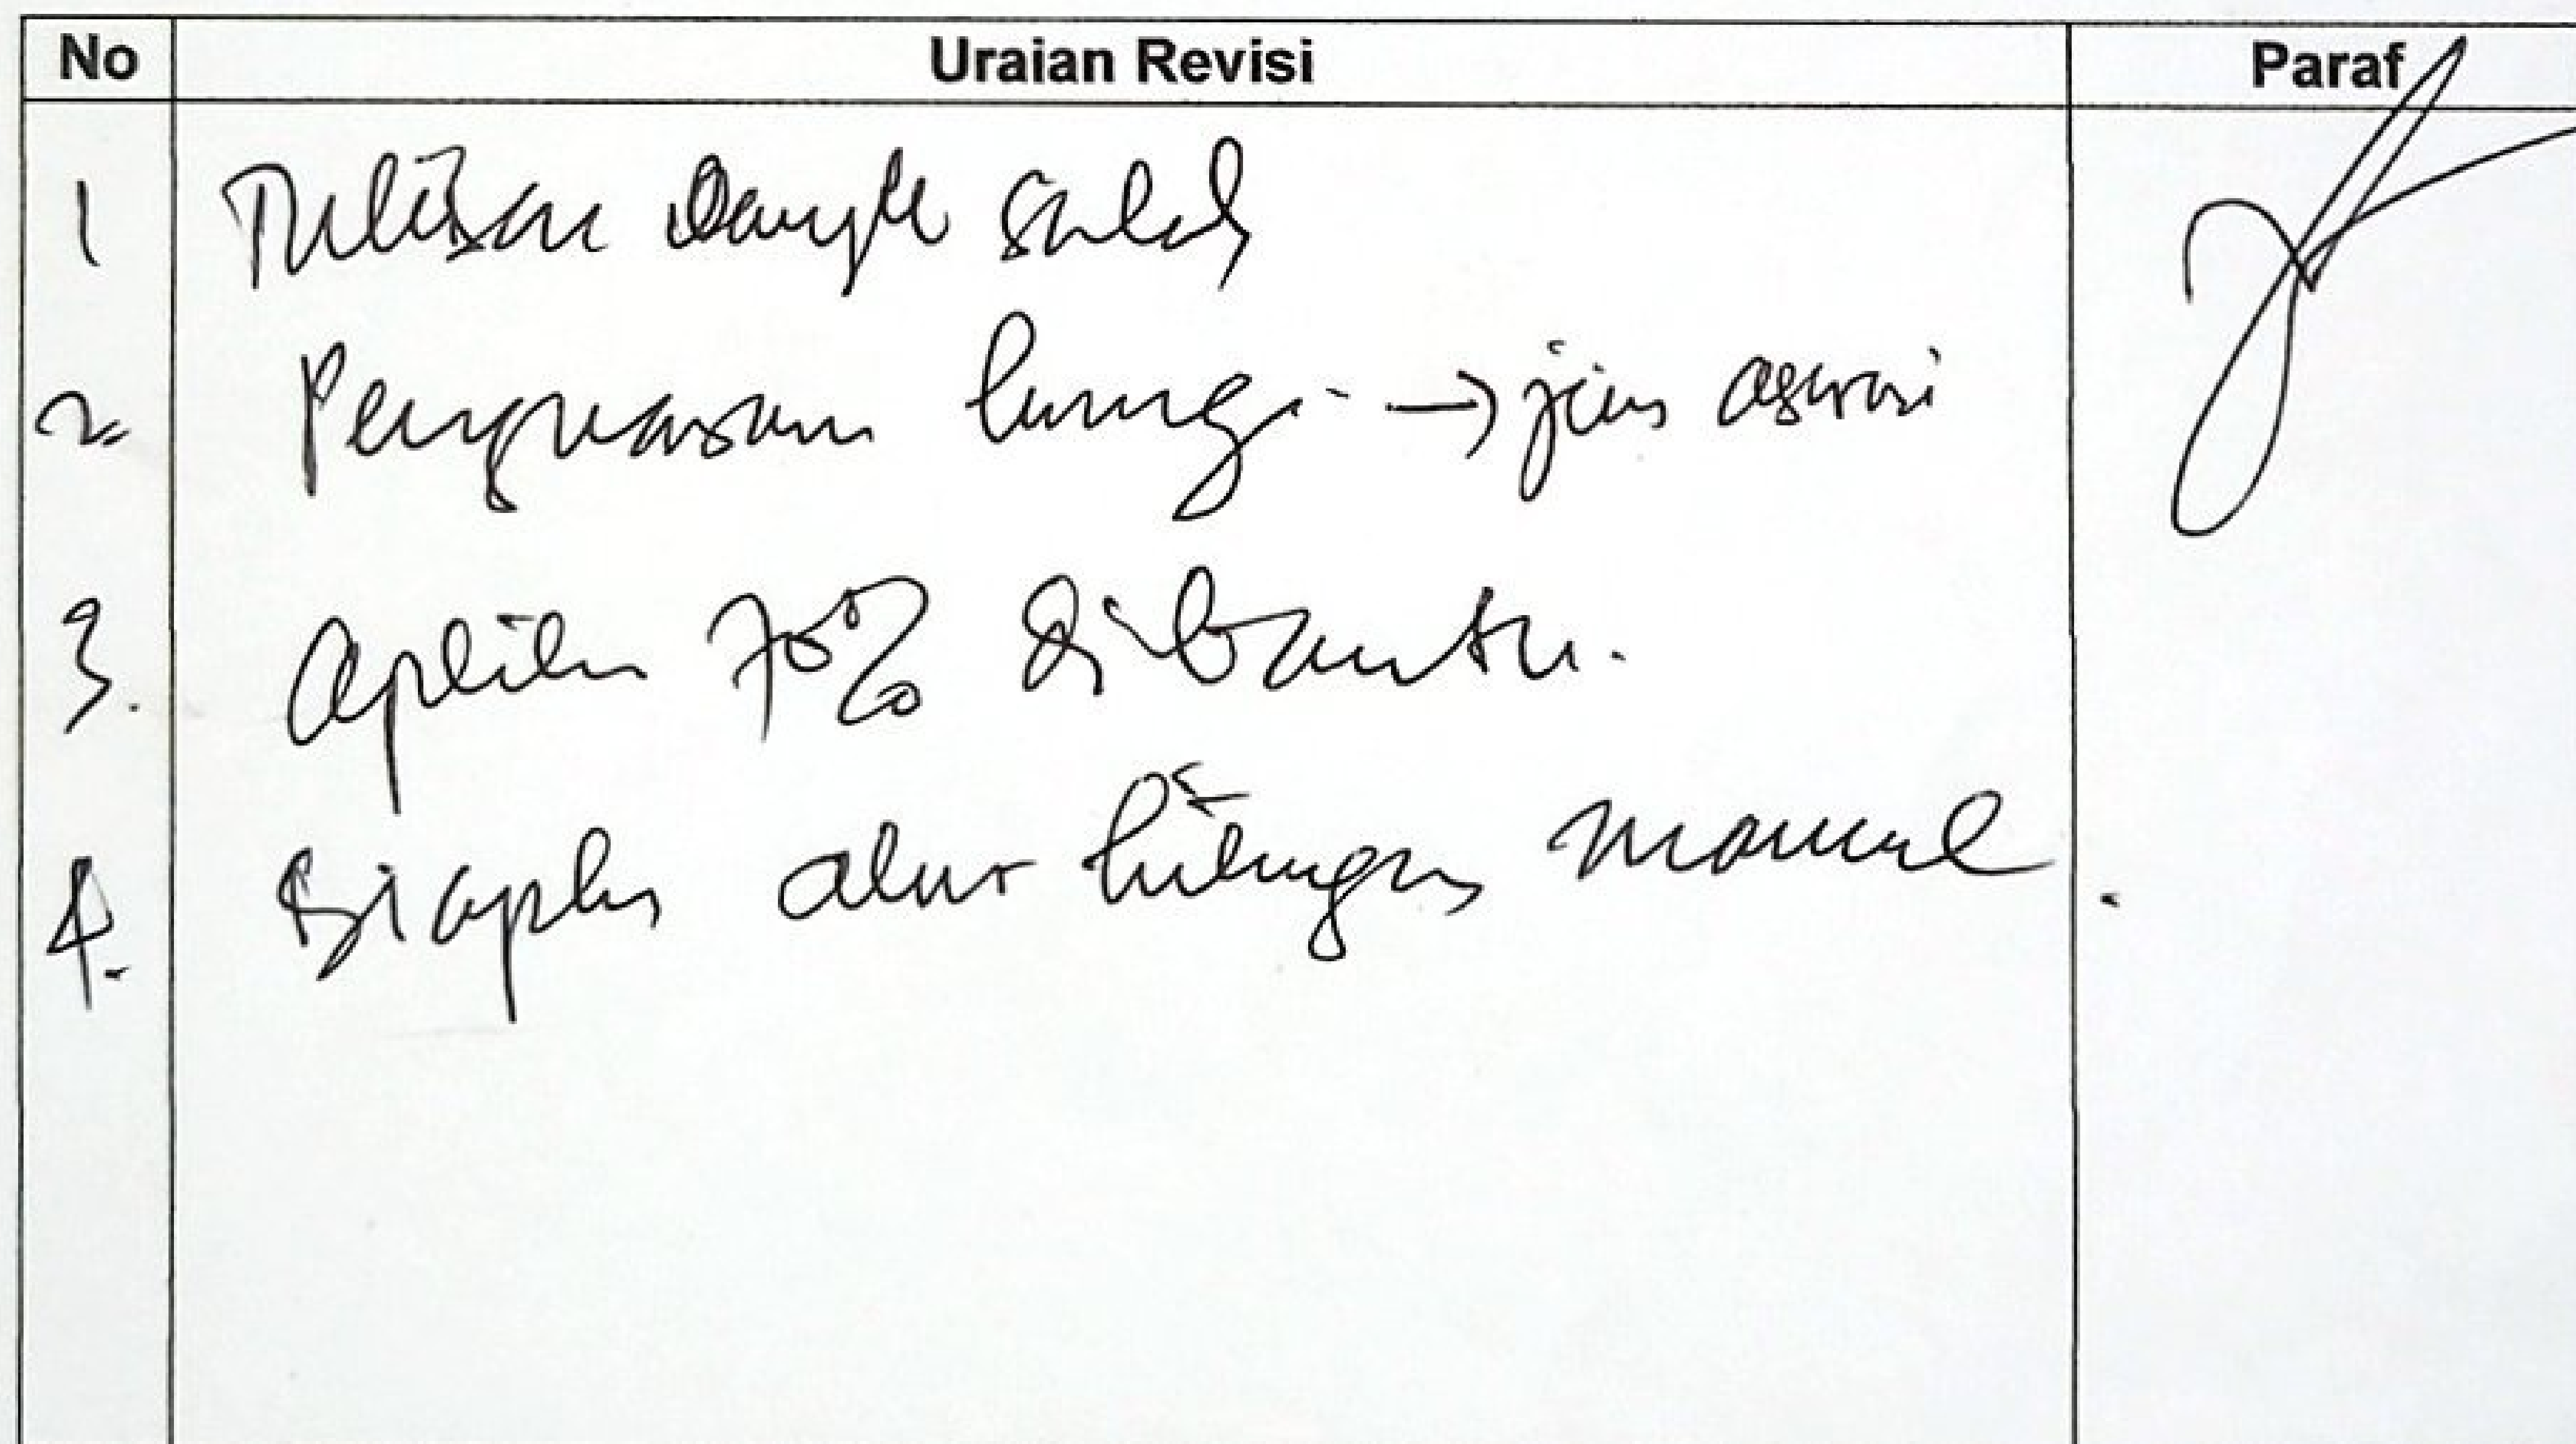 No Uraian Revisi Paraf
1 Tulisan banyak salah
2. Penguasaan kurang →
3. aplikasi 70% dibantu.
4. Siapkan alur hitungan manual.